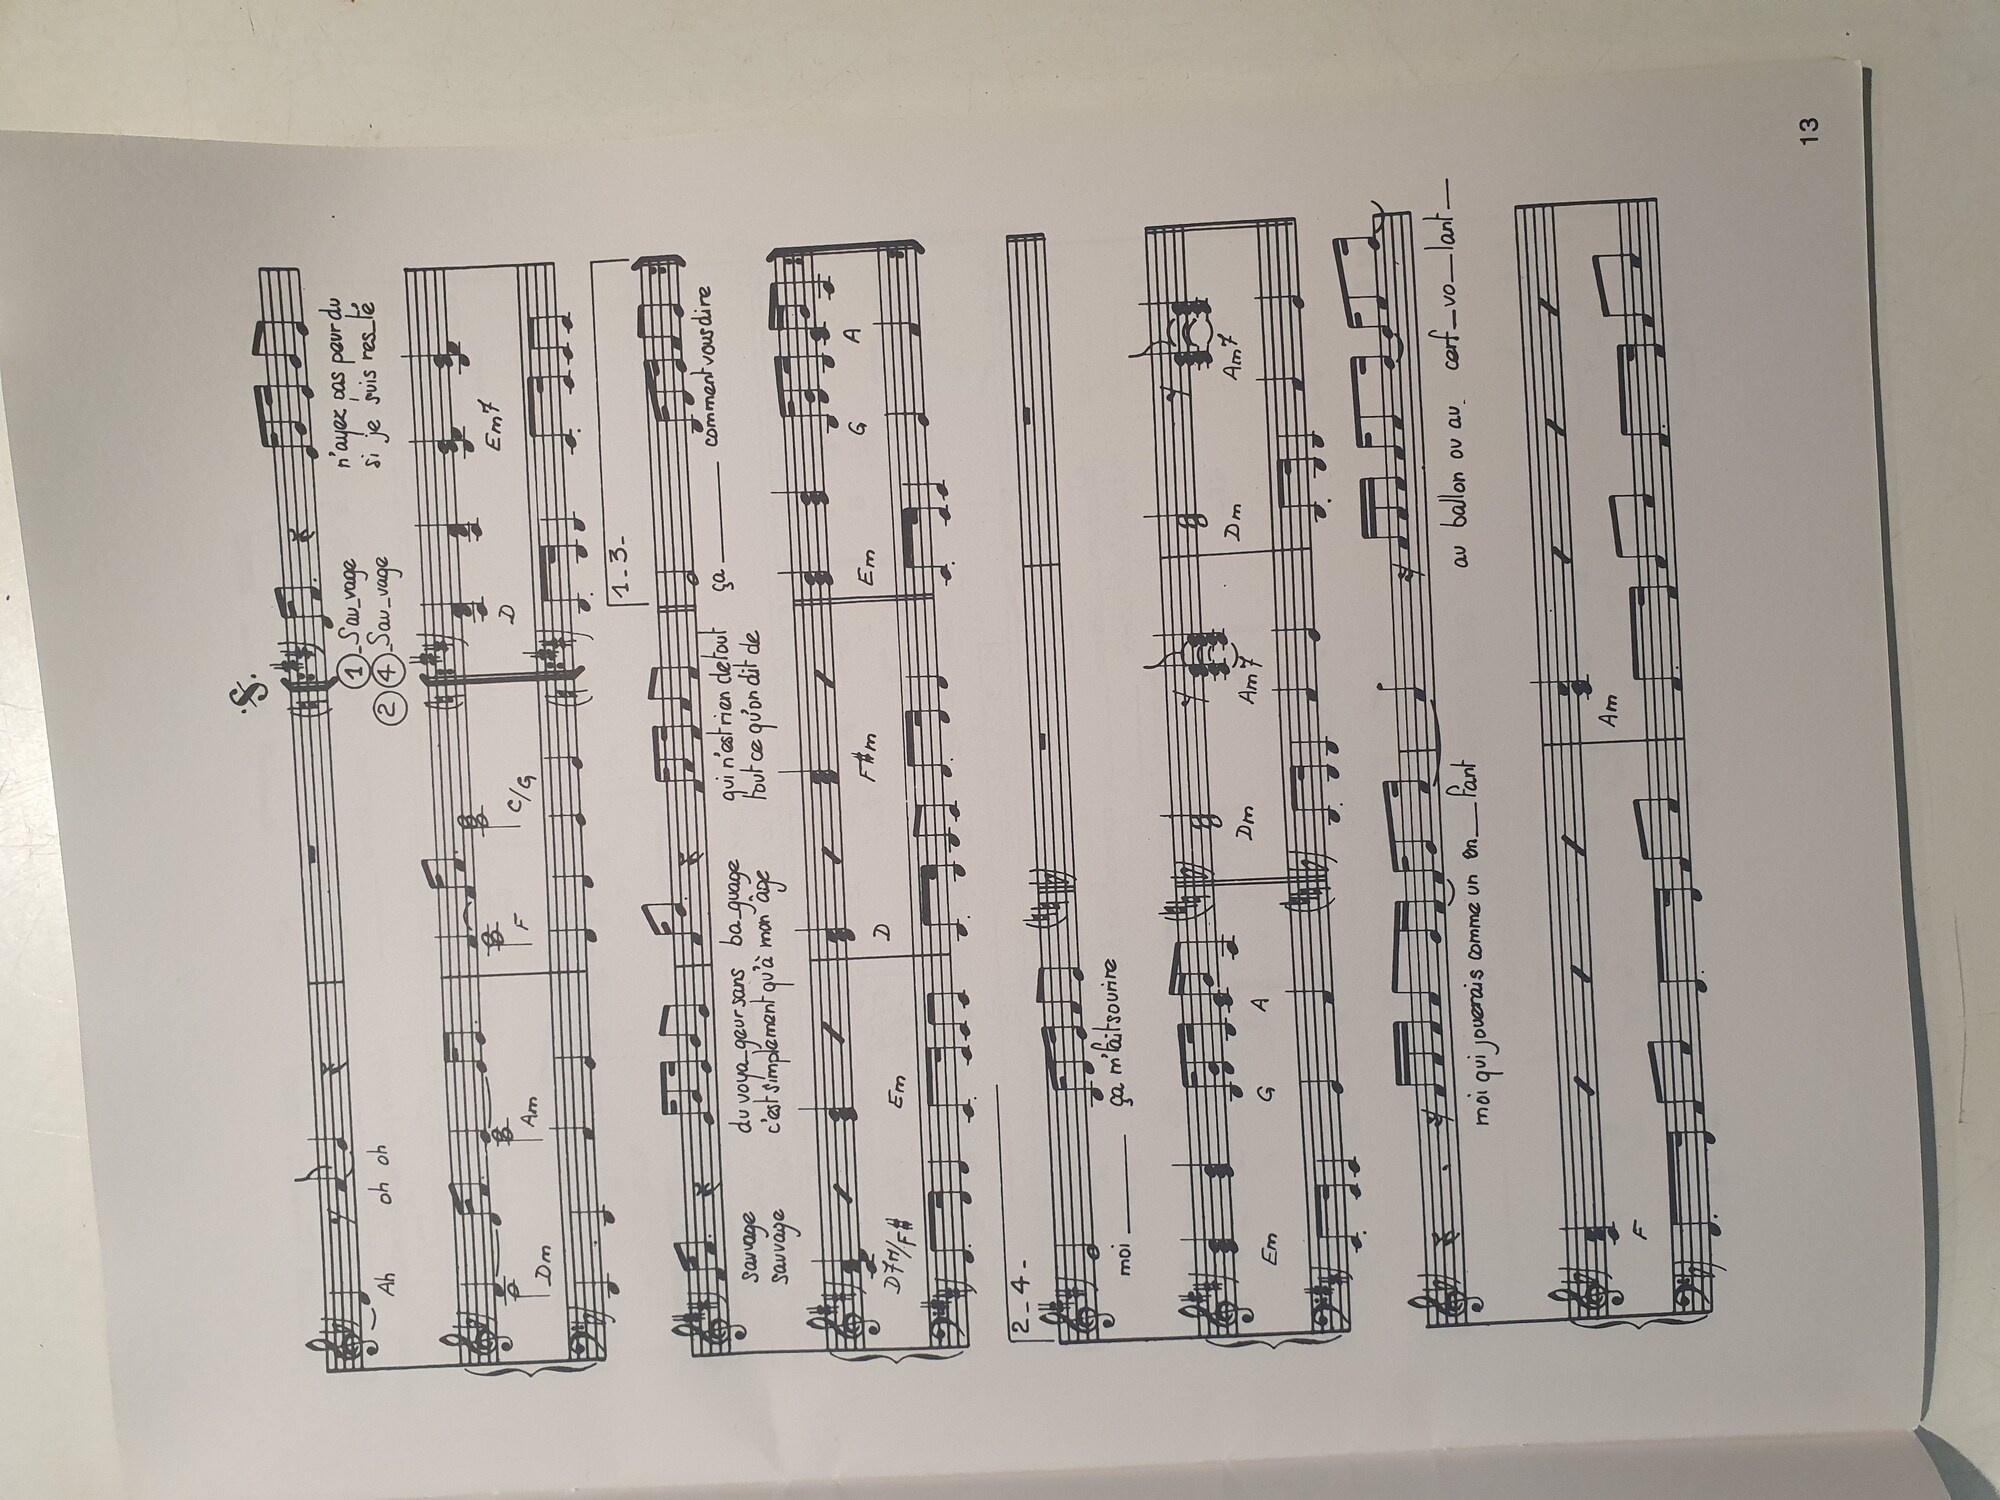 Ah oh oh ① Sau_vage n'ayez pas peur du
② ④ Sau_vage si je suis res_té
Dm Am F C/G D Em7
1_3_
sauvage du voya_geur sans ba_guage qui n'est rien de tout ça comment vous dire
sauvage c'est simplement qu'à mon âge tout ce qu'on dit de
D7M/F# Em D F#m Em G A
2_4_
moi ça m'fait sourire
Em G A Dm Am7 Dm Am7
moi qui jouerais comme un en_fant au ballon ou au cerf_vo_lant
F Am
13